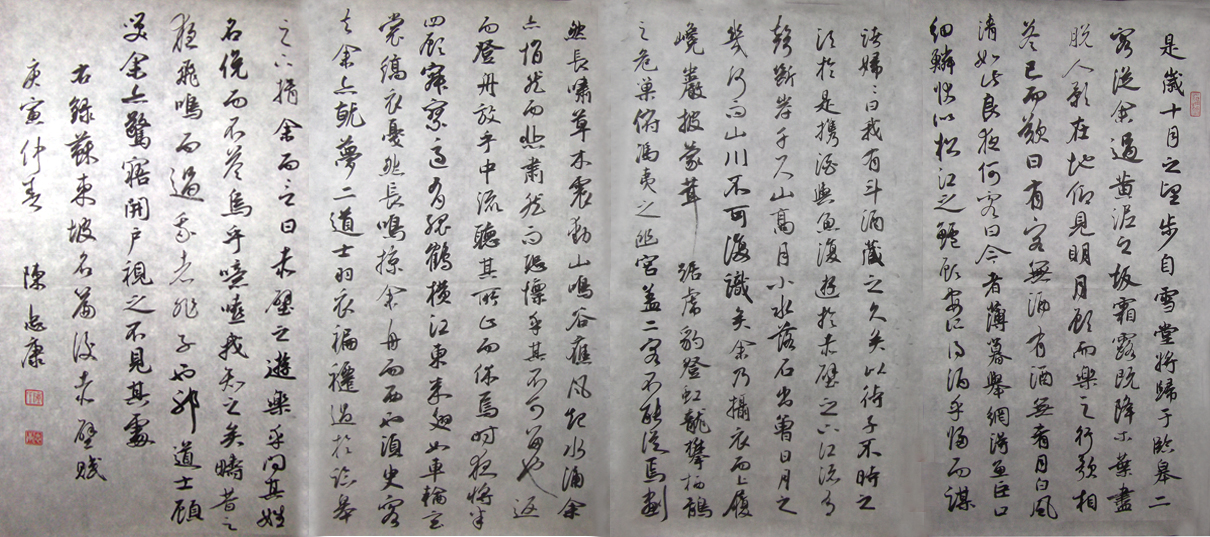 是歲十月之望步自雪堂將歸于臨皋二
客從余過黃泥之坂霜露既降木葉盡
脫人影在地仰見明月顧而樂之行歌相
答已而歎曰有客無酒有酒無肴月白風
清如此良夜何客曰今者薄暮舉網得魚巨口
細鱗狀似松江之鱸顧安所得酒乎歸而謀
諸婦〻曰我有斗酒藏之久矣以待子不時之
須於是攜酒與魚復遊於赤壁之下江流有
聲斷岸千尺山高月小水落石出曾日月之
幾何而山川不可復識矣余乃攝衣而上履
巉巖披蒙茸踞虎豹登虬龍攀栖鶻
之危巢俯馮夷之幽宮蓋二客不能從焉劃
然長嘯草木震動山鳴谷應風起水涌余
亦悄然而悲肅然而恐凜乎其不可留也返
而登舟放乎中流聽其所止而休焉時夜將半
四顧寂寥適有孤鶴橫江東來翅如車輪玄
裳縞衣戛然長鳴掠余舟而西也須臾客
去余亦就夢二道士羽衣褊褼過於臨皋
之下揖余而言曰赤壁之遊樂乎問其姓
名俛而不答烏乎噫嘻我知之矣疇昔之
夜飛鳴而過我者非子也邪道士顧
笑余亦驚寤開戶視之不見其處
右錄蘇東坡名篇後赤壁賦
庚寅仲春 陳志康